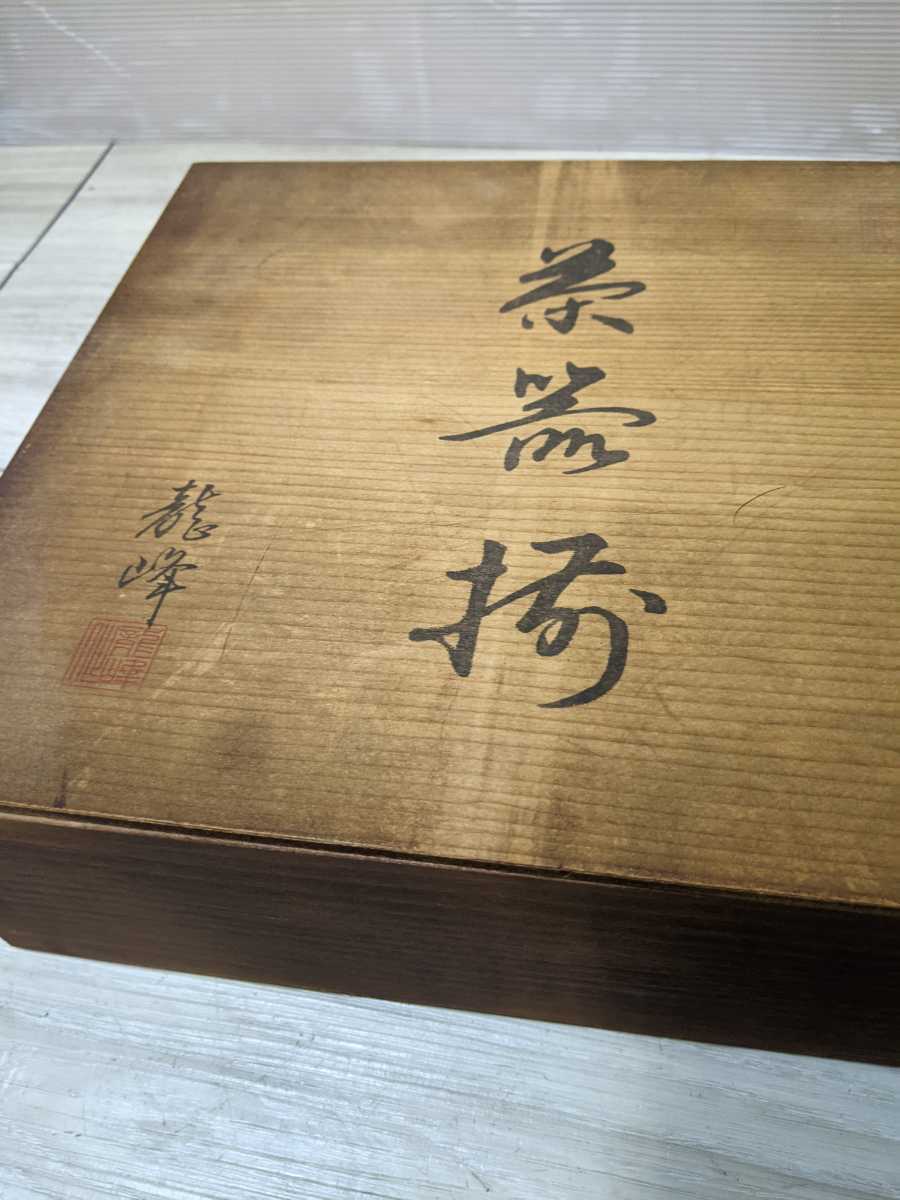 茶器揃
龍峰